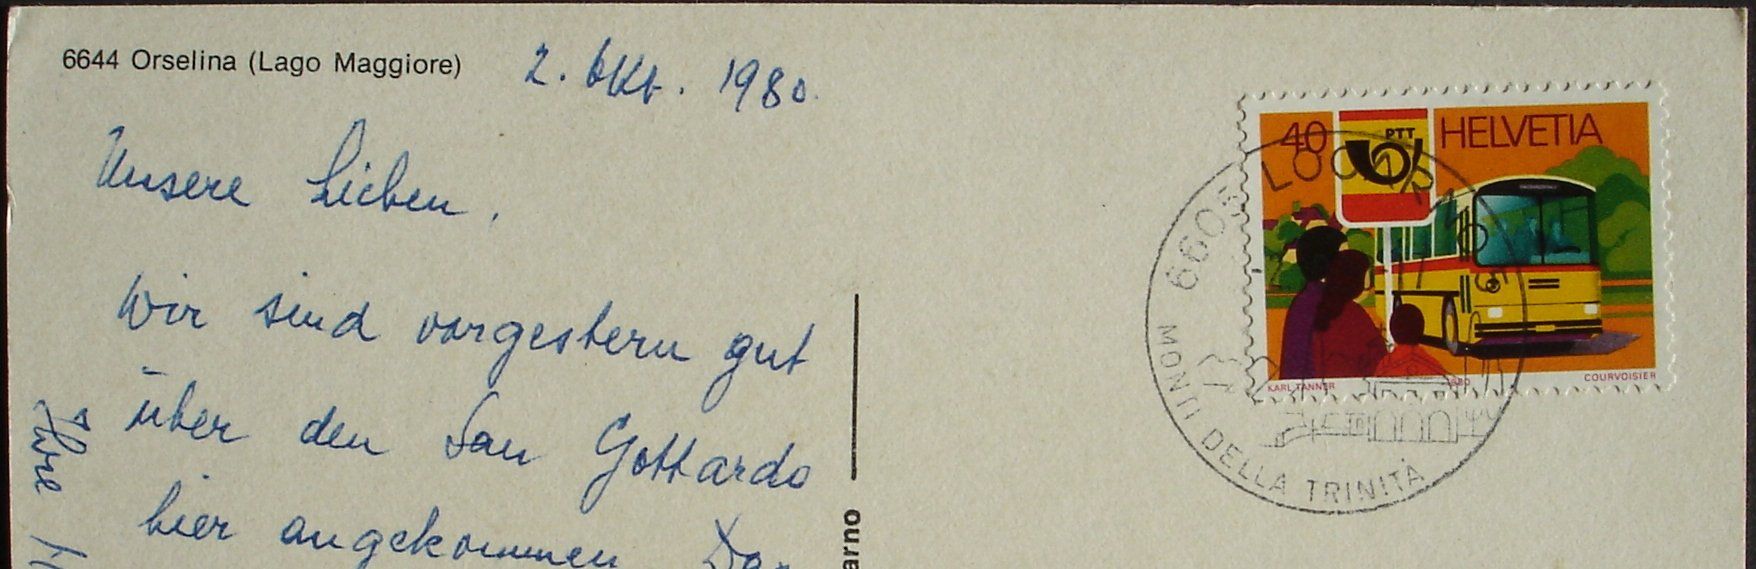 6644 Orselina (Lago Maggiore)
2. Okt. 1980.
Unsere Lieben,
Wir sind vorgestern gut
über den San Gottardo
hier angekommen
Ihre
arno
40 PTT HELVETIA
KARL TANNER 1980 COURVOISIER
6605 LOCARNO 5
MONTI DELLA TRINITÀ